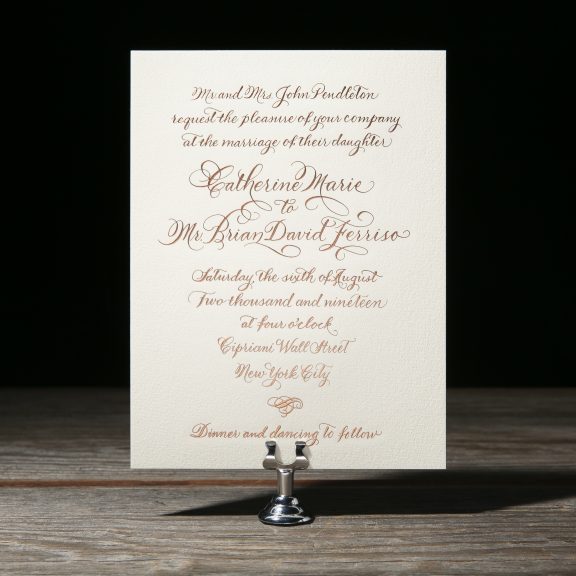 Mr. and Mrs. John Pendleton
request the pleasure of your company
at the marriage of their daughter
Catherine Marie
to
Mr. Brian David Ferriso
Saturday, the sixth of August
Two thousand and nineteen
at four o'clock
Cipriani Wall Street
New York City
Dinner and dancing to follow